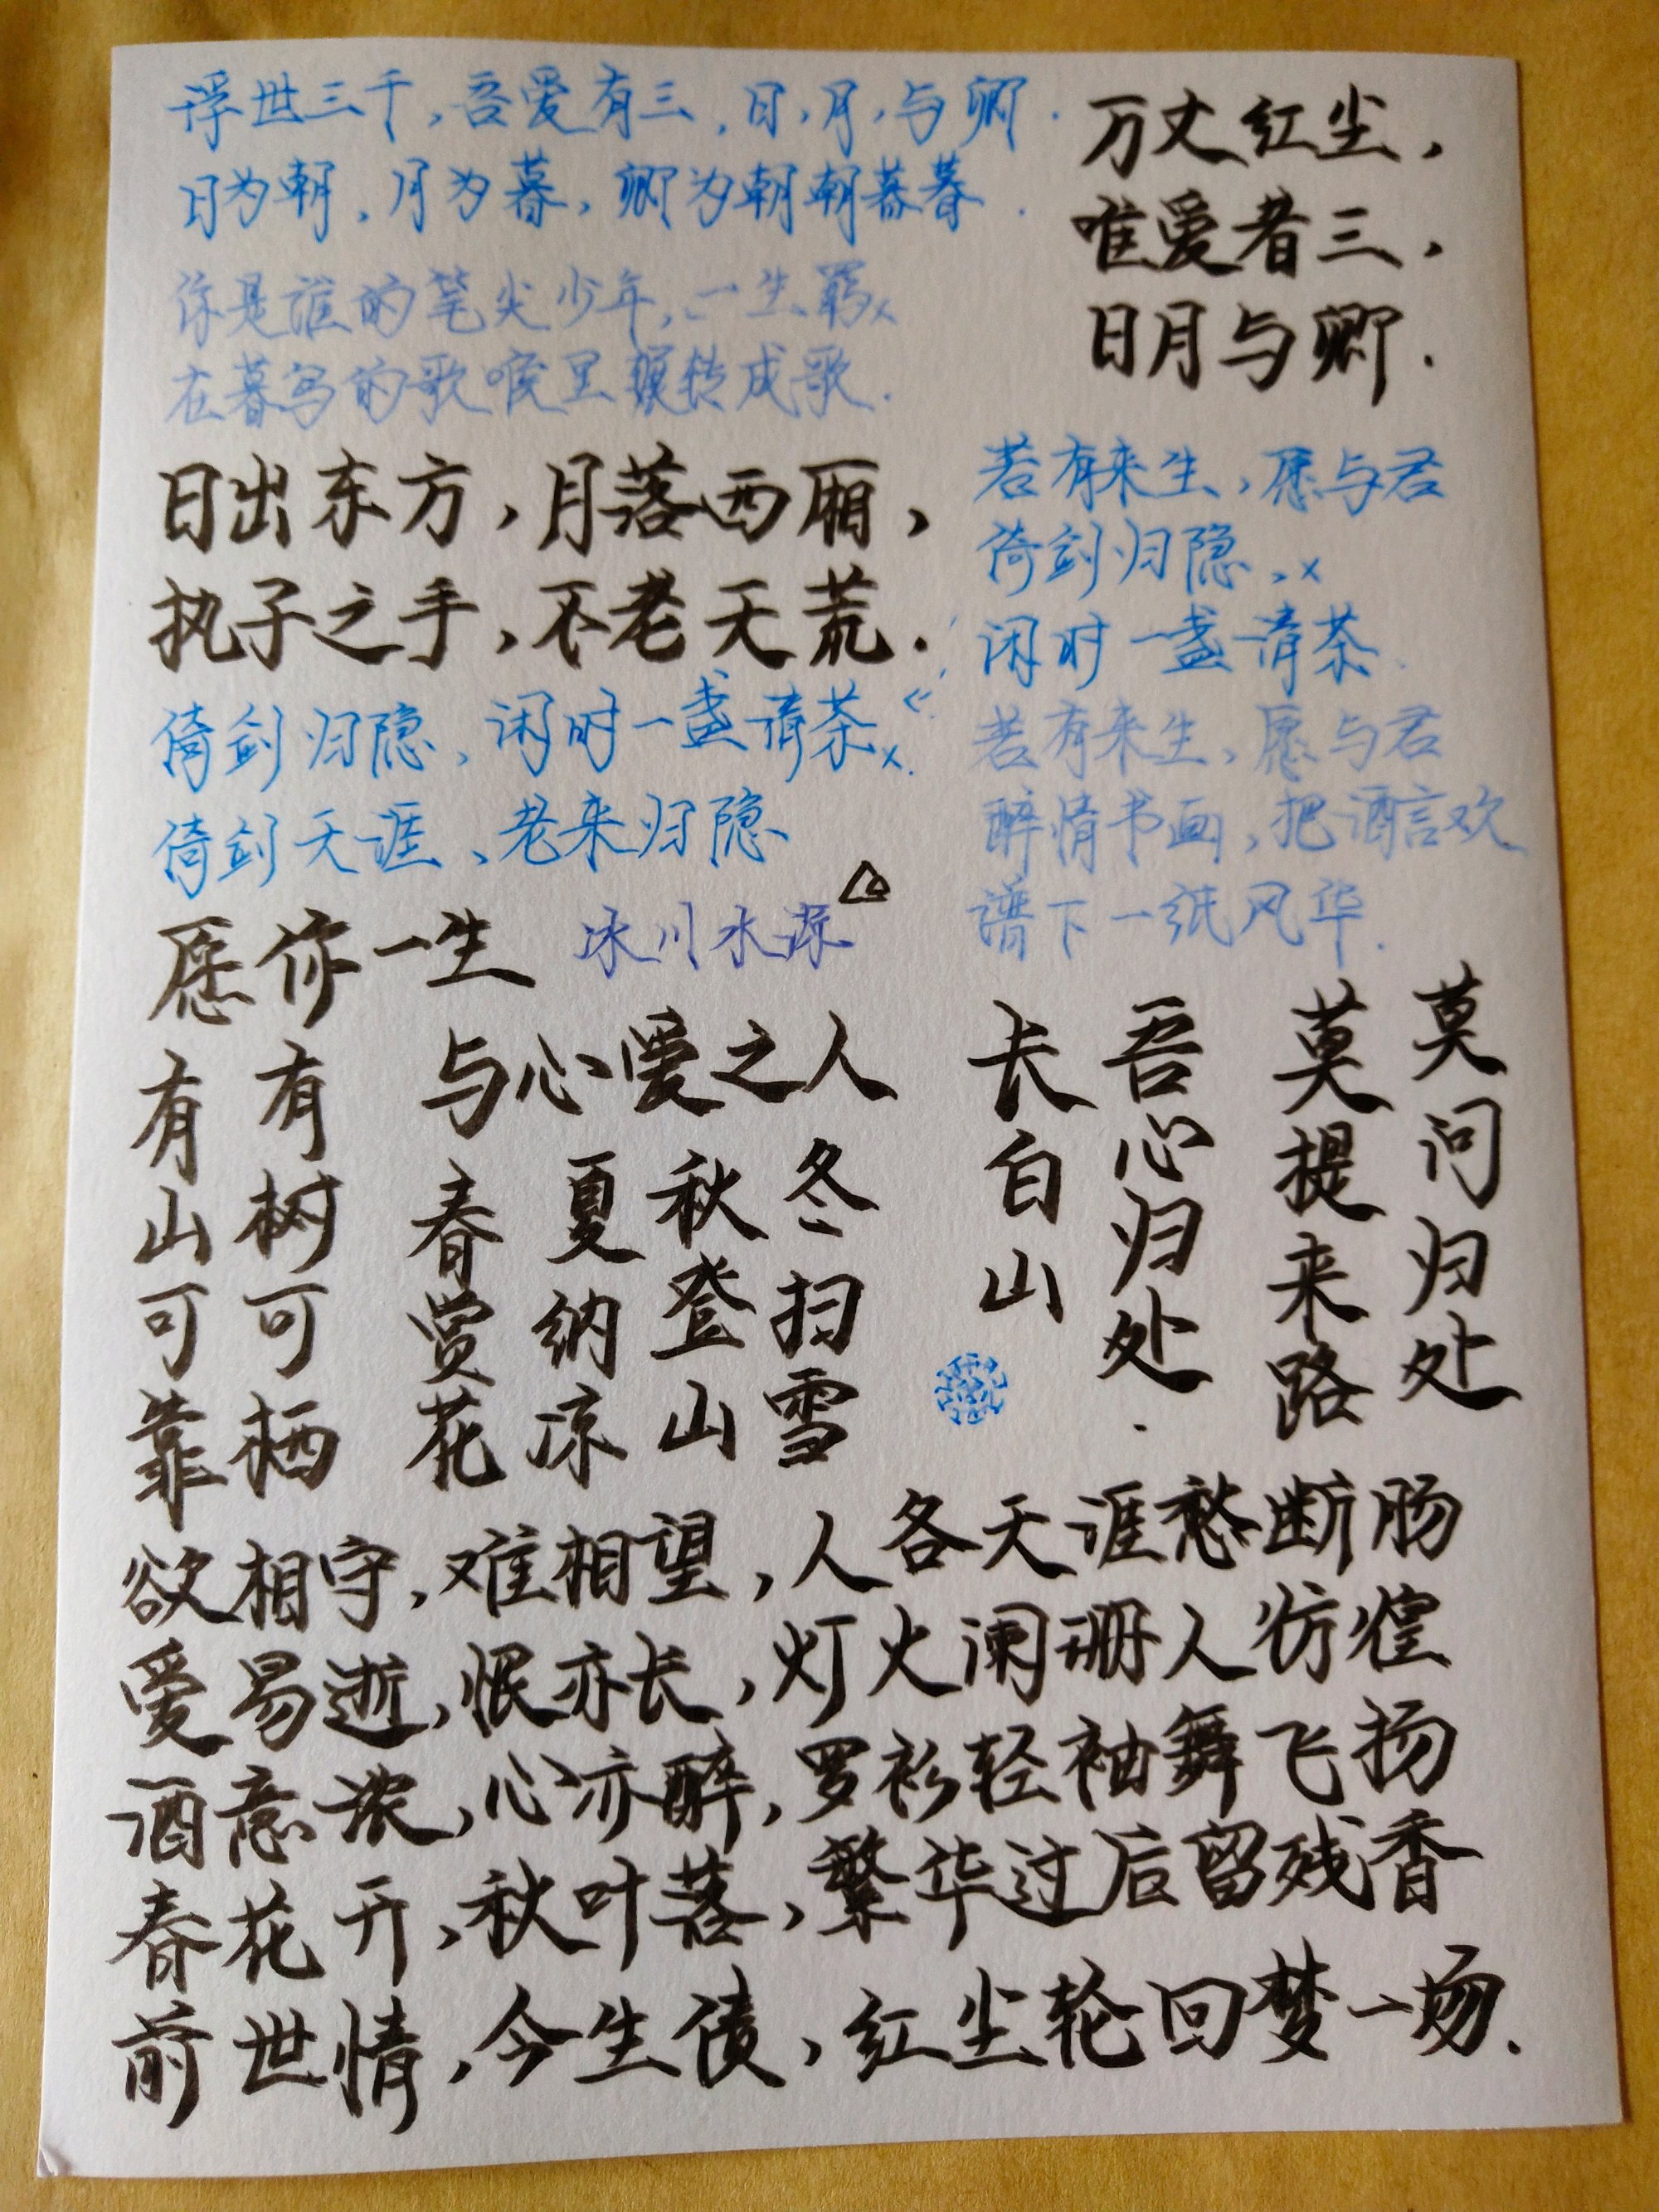 浮世三千,吾爱有三,日,月,与卿.
日为朝,月为暮,卿为朝朝暮暮.
你是谁的笔尖少年,一生
在暮鸟的歌喉里辗转成歌.
万丈红尘,
唯爱者三,
日月与卿.
日出东方,月落西厢,
执子之手,不老天荒.
倚剑归隐,闲时一盏清茶
倚剑天涯,老来归隐
若有来生,愿与君
倚剑归隐,
闲时一盏清茶.
若有来生,愿与君
醉情书画,把酒言欢
谱下一纸风华.
冰川水源
愿你一生
有山可靠
有树可栖
与心爱之人
春赏花
夏纳凉
秋登山
冬扫雪
莫问归处
莫提来路
吾心归处.
长白山
欲相守,难相望,人各天涯愁断肠
爱易逝,恨亦长,灯火阑珊人彷徨
酒意浓,心亦醉,罗衫轻袖舞飞扬
春花开,秋叶落,繁华过后留残香
前世情,今生债,红尘轮回梦一场.